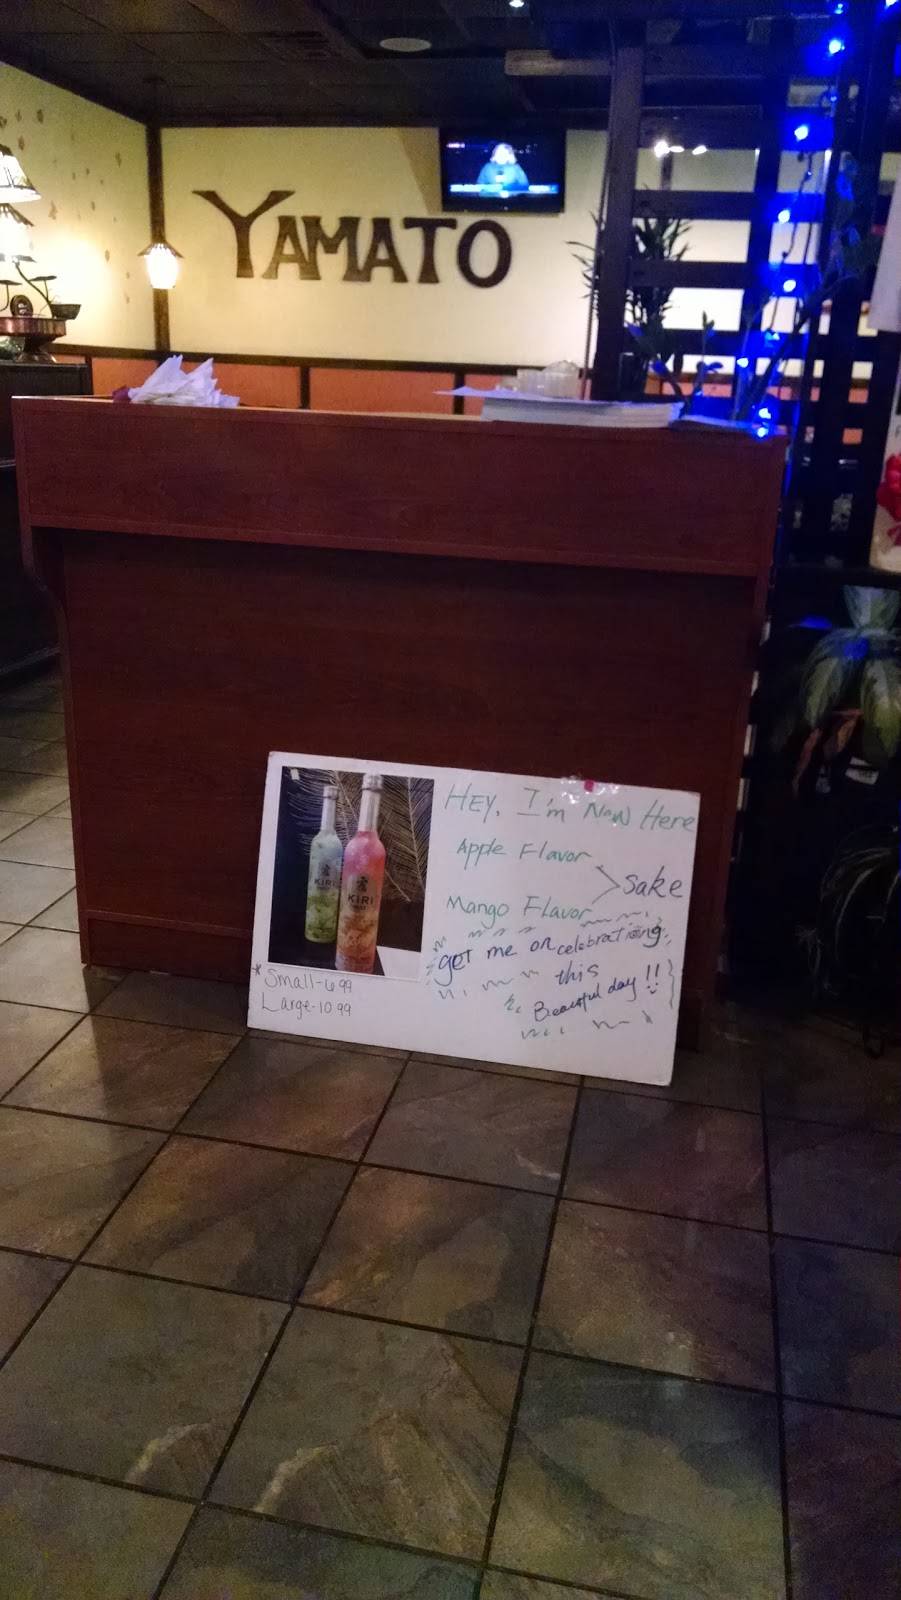 YAMATO
HEY, I'm Now Here
Apple Flavor
Sake
Mango Flavor
get me on celebrationg
this
Beautiful day !!
KIRI
KIRI
* Small-6 99
Large-10 99